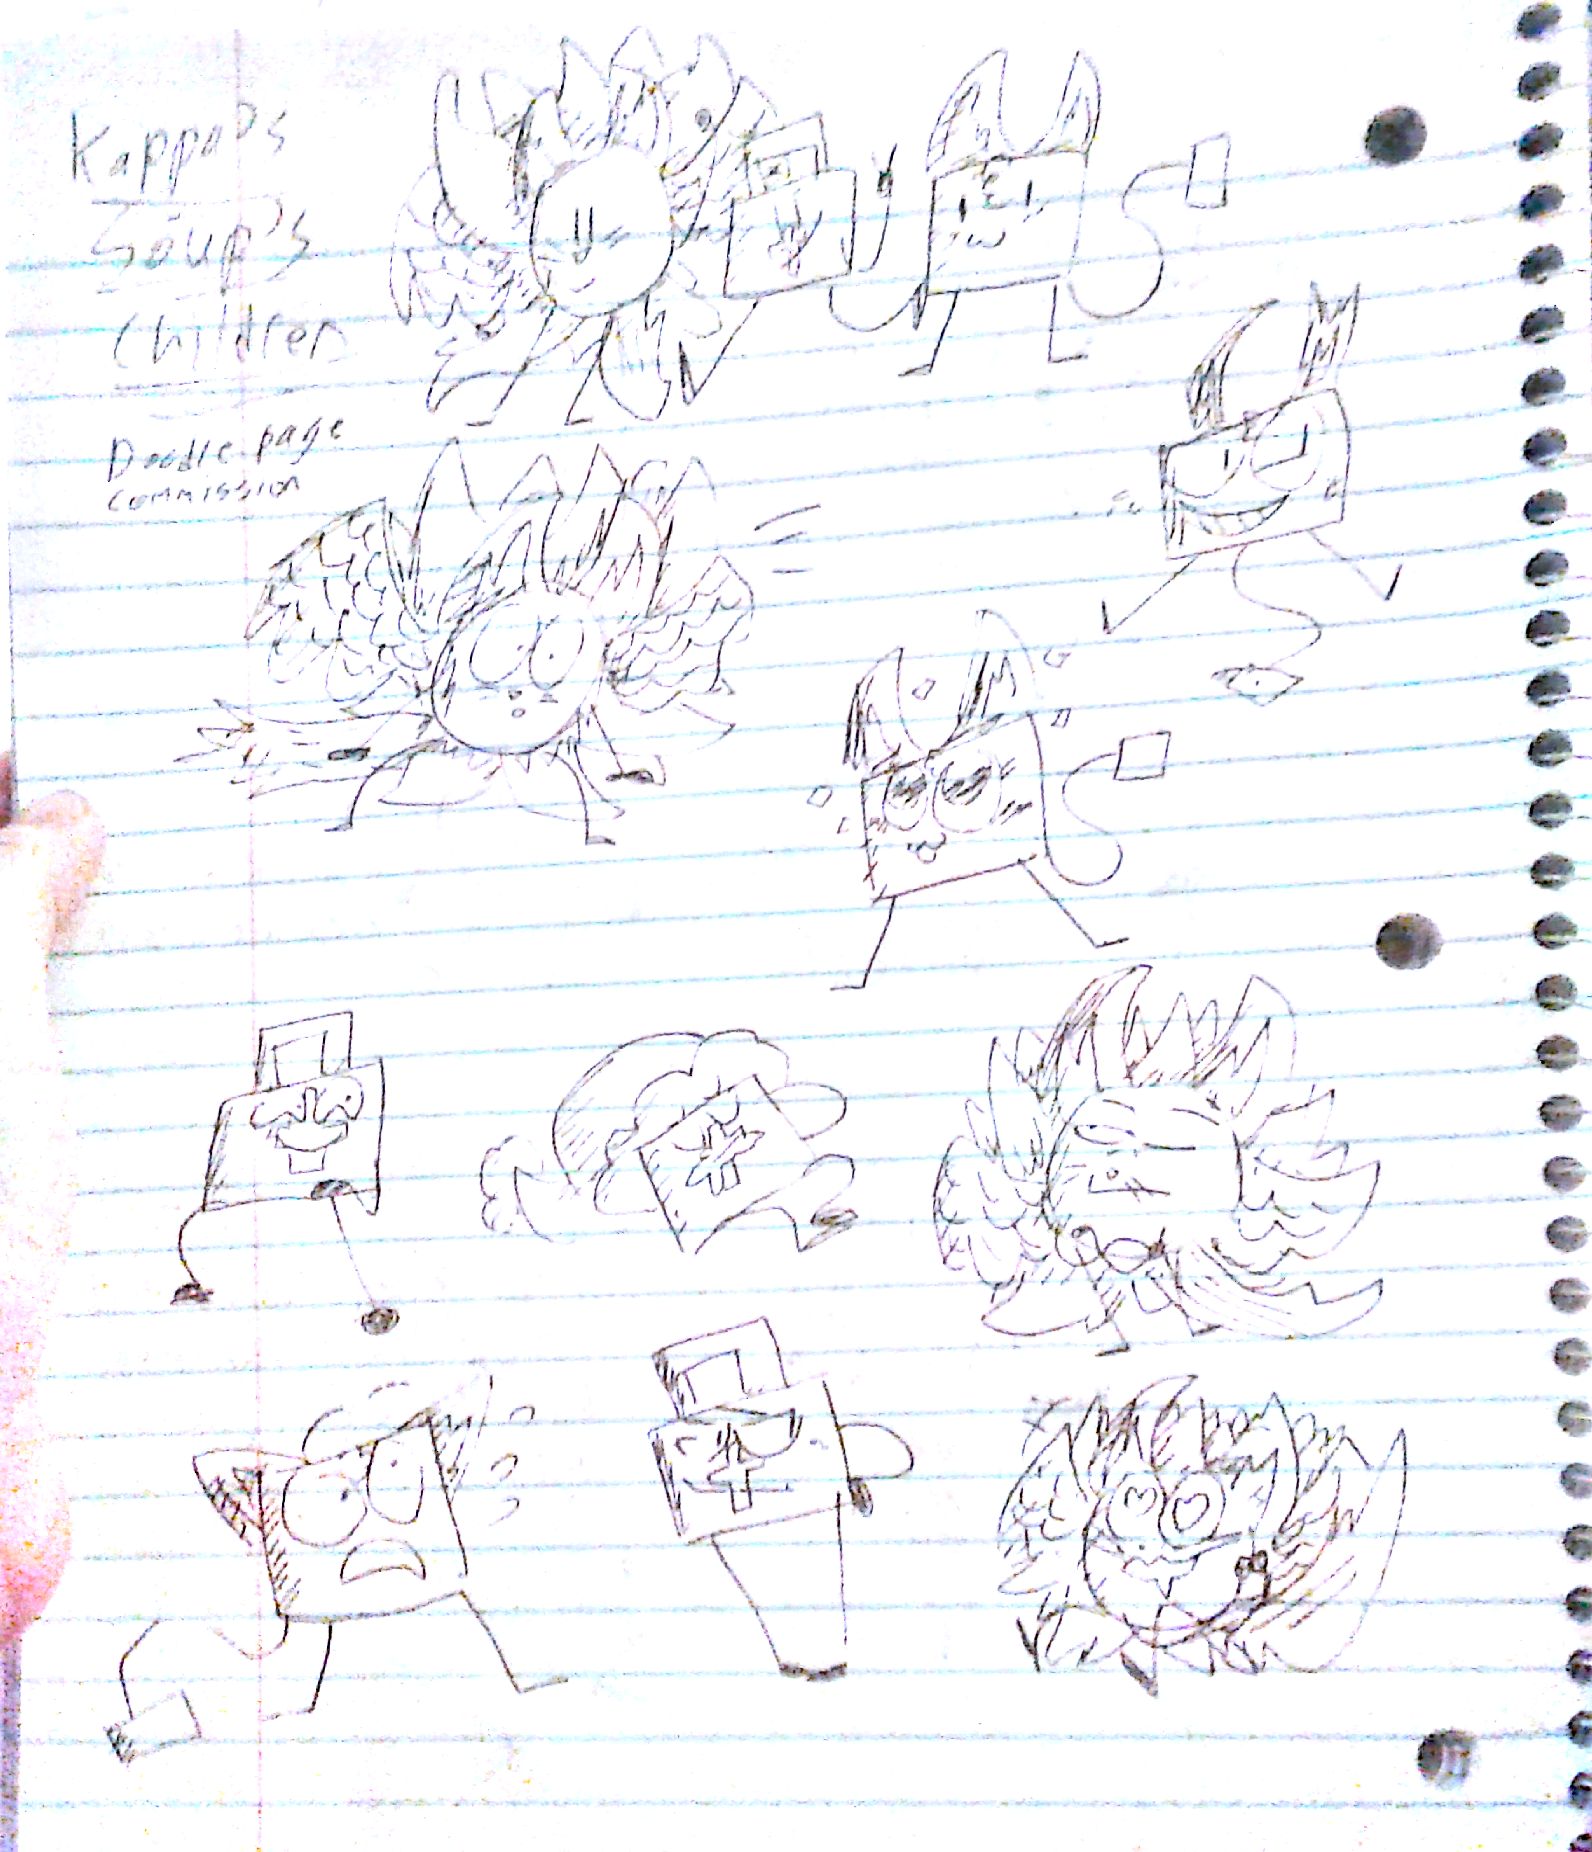 Kappa's
Soup's
Children
Doodle page
commission